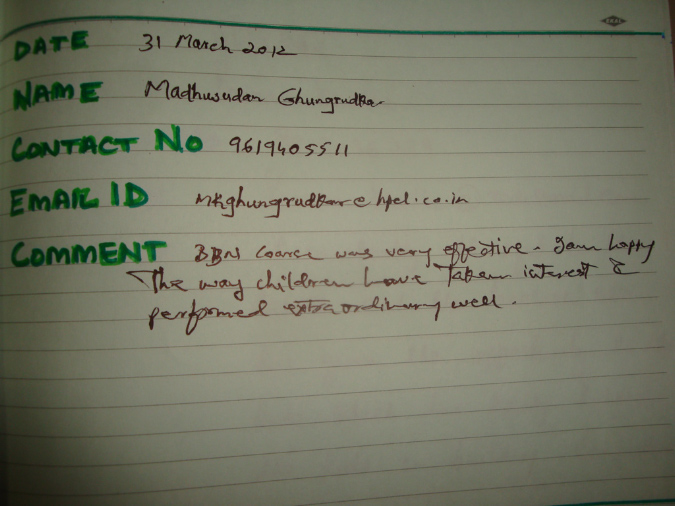 DATE 31 March 2012
NAME Madhusudan Ghungrudkar
CONTACT No 9619405511
EMAIL ID mkghungrudkar@hpcl.co.in
COMMENT BBN Coarse was very effective. I am happy
The way children have taken interest &
perfomed extraordinary well.